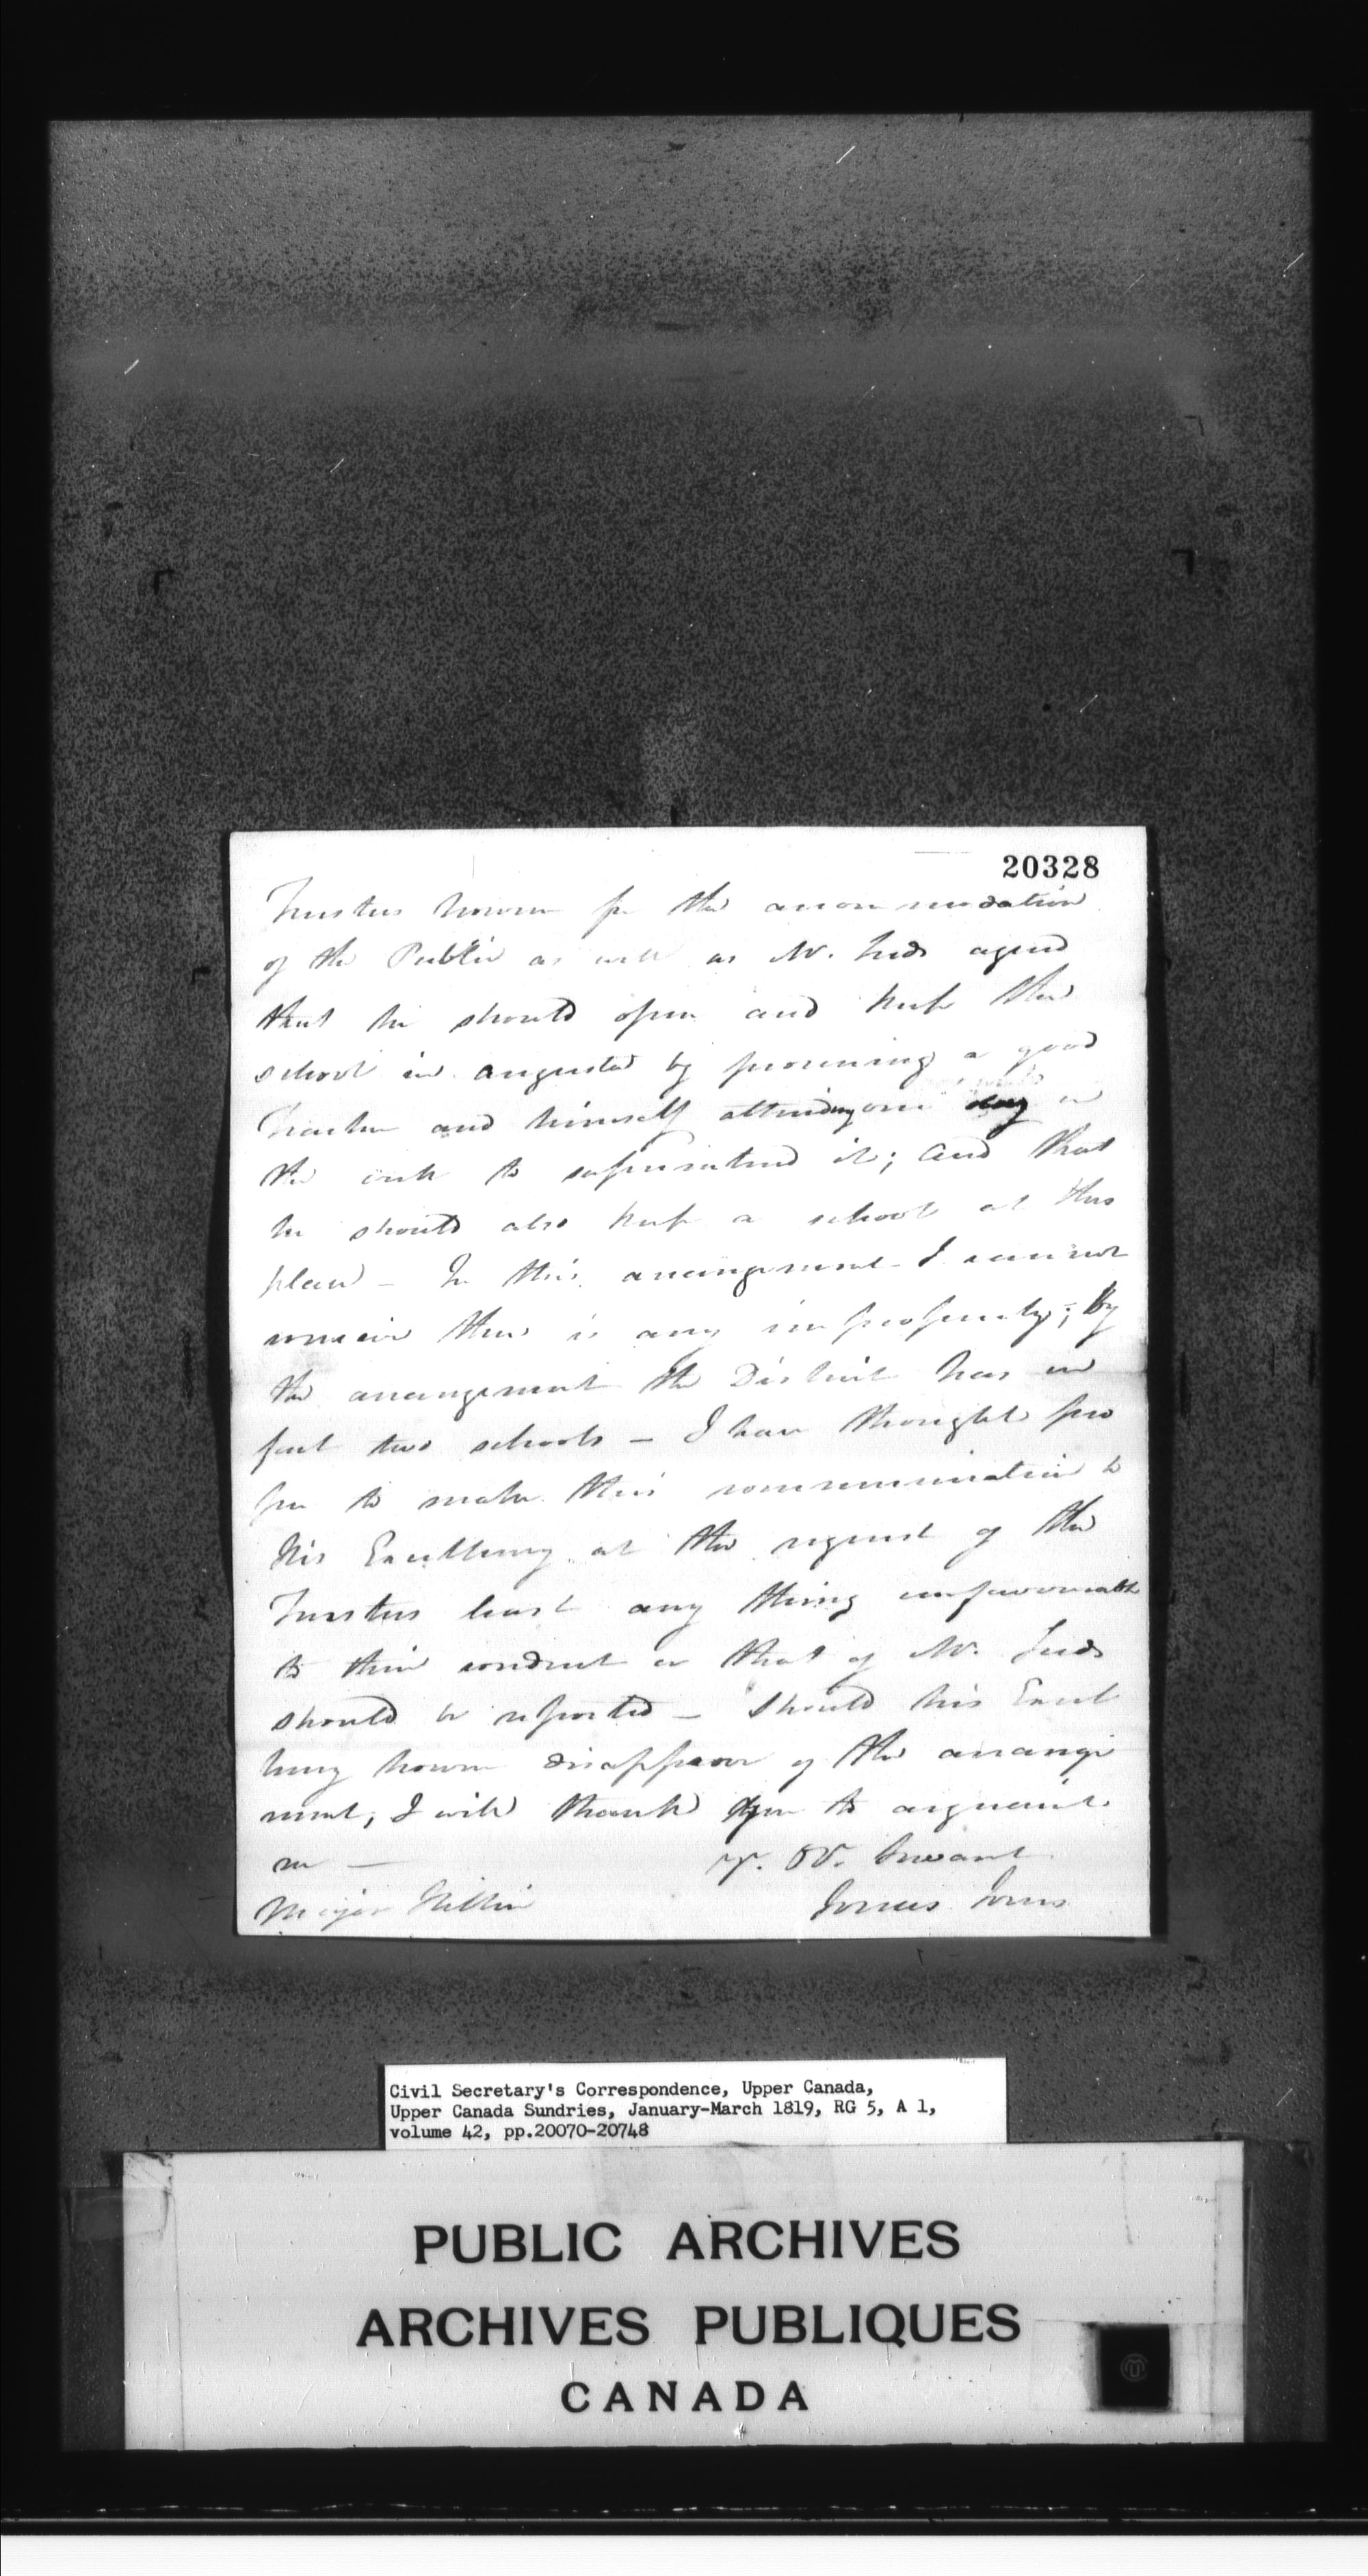 20328
Trustees however for the accommodation
of the Public as well as Mr. Leeds agreed
that he should open and keep the
school in Augusta by procuring a good
Teacher and himself attending one day in
the week to superintend it; and that
he should also keep a school at this
place – In this arrangement I cannot
conceive there is any impropriety; by
the arrangement the District has in
fact two schools – I have thought pro
per to make this communication to
His Excellency at the request of the
Trustees least any thing unfavourable
to their conduct or that of Mr. Leeds
should be reported – Should his Excel
lency however disapprove of the arrange
ment, I will thank you to acquaint
me –
yr. Obt. Servant
Major Hillier
Jonas Jones
Civil Secretary's Correspondence, Upper Canada,
Upper Canada Sundries, January-March 1819, RG 5, A 1,
volume 42, pp.20070-20748
PUBLIC ARCHIVES
ARCHIVES PUBLIQUES
CANADA